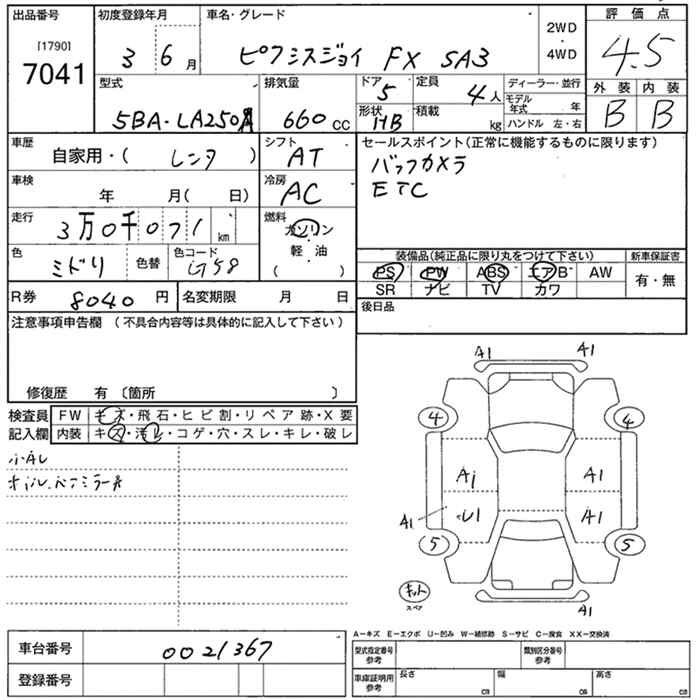 出品番号
[1790]
7041
初度登録年月
3 6月
車名・グレード
ピクシスジョイ FX SA3
2WD
・
4WD
評価点
4.5
型式
5BA-LA250A
排気量
660cc
ドア
5
定員
4人
形状
HB
積載
kg
ディーラー・並行
モデル
年式 年
ハンドル 左・右
外装
B
内装
B
車歴
自家用・( レンタ )
シフト
AT
セールスポイント(正常に機能するものに限ります)
バックカメラ
ETC
車検
年 月( 日)
冷房
AC
走行
3万0千071km
燃料
ガソリン
軽・油
( )
色
ミドリ
色替
色コード
G58
装備品(純正品に限り丸をつけて下さい)
PS PW ABS エアB AW
SR ナビ TV カワ
新車保証書
有・無
R券 8040円
名変期限 月 日
後日品
注意事項申告欄 (不具合内容等は具体的に記入して下さい)
修復歴 有 〔箇所 〕
検査員
記入欄
FW キズ・飛石・ヒビ割・リペア跡・X要
内装 キズ・汚レ・コゲ・穴・スレ・キレ・破レ
小キレ
A1 A1
4 4
A1 A1
A1 U1 A1
5 5
キット
スペア
A1
A-キズ E-エクボ U-凹み W-補修跡 S-サビ C-腐食 XX-交換済
車台番号 0021367
登録番号
型式指定番号
参考
類別区分番号
参考
車庫証明用
参考
長さ cm
幅 cm
高さ cm